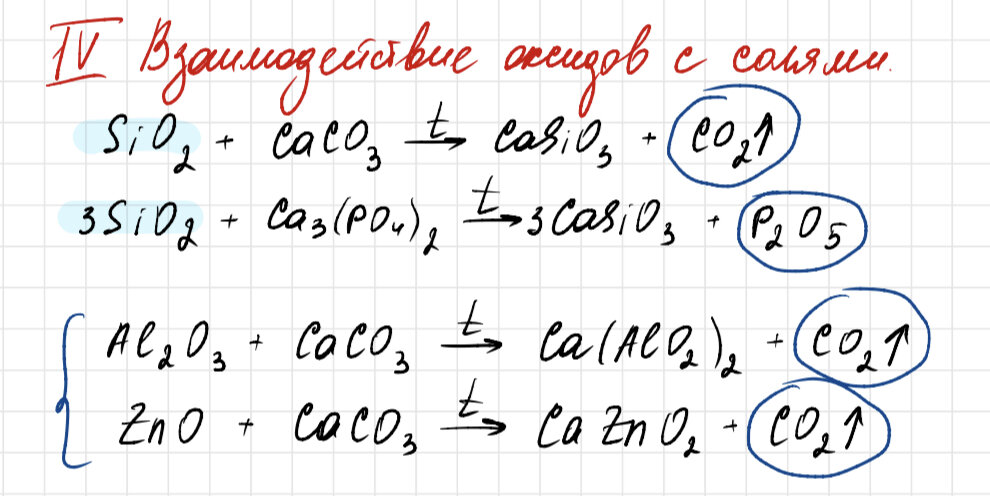 IV Взаимодействие оксидов с солями.
SiO₂ + CaCO₃ →t CaSiO₃ + CO₂↑
3SiO₂ + Ca₃(PO₄)₂ →t 3CaSiO₃ + P₂O₅
Al₂O₃ + CaCO₃ →t Ca(AlO₂)₂ + CO₂↑
ZnO + CaCO₃ →t CaZnO₂ + CO₂↑